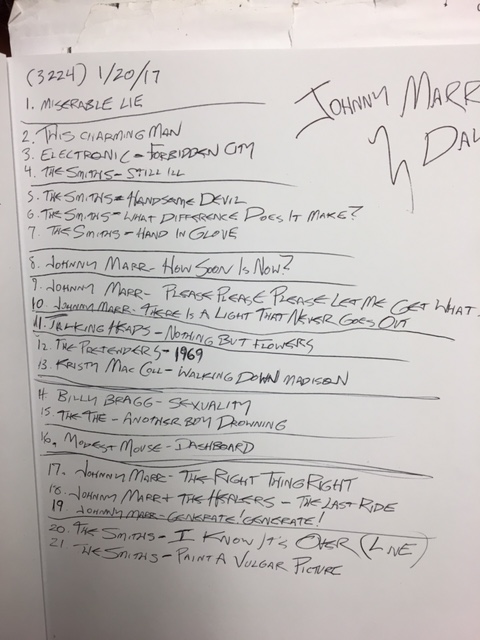 (3224) 1/20/17
JOHNNY MARR
1. MISERABLE LIE
2. THIS CHARMING MAN
3. ELECTRONIC - FORBIDDEN CITY
4. THE SMITHS - STILL ILL
5. THE SMITHS - HANDSOME DEVIL
6. THE SMITHS - WHAT DIFFERENCE DOES IT MAKE?
7. THE SMITHS - HAND IN GLOVE
8. JOHNNY MARR - HOW SOON IS NOW?
9. JOHNNY MARR - PLEASE PLEASE PLEASE LET ME GET WHAT
10. JOHNNY MARR - THERE IS A LIGHT THAT NEVER GOES OUT
11. TALKING HEADS - NOTHING BUT FLOWERS
12. THE PRETENDERS - 1969
13. KRISTY MAC COLL - WALKING DOWN MADISON
14. BILLY BRAGG - SEXUALITY
15. THE THE - ANOTHER BOY DROWNING
16. MODEST MOUSE - DASHBOARD
17. JOHNNY MARR - THE RIGHT THING RIGHT
18. JOHNNY MARR + THE HEALERS - THE LAST RIDE
19 JOHNNY MARR - GENERATE! GENERATE!
20. THE SMITHS - I KNOW IT'S OVER (LIVE)
21 THE SMITHS - PAINT A VULGAR PICTURE